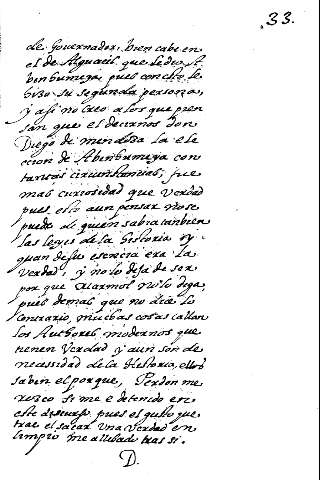 33.
de Governador, bien cabe en
el de Alguacil que le dio A-
binhumeya, pues con esto le
hizo su segunda persona,
y asi no creo a los que pien
san que el decirnos Don
Diego de mendoza la ele
ccion de Abinhumeya con
tantas circunstancias, fue
mas curiosidad que verdad
pues esto aun pensar no se
puede de quien sabia tan bien
las leyes de la historia y
quan de su esencia era la
verdad, y no lo deja de ser
por que Marmol no lo diga,
pues demas que no dice lo
contrario, muchas cosas callan
los Authores modernos que
tienen verdad y aun son de
necessidad de la Historia, ellos
saben el porque, Perdon me
rezco si me e detenido en
este discurso, pues el gusto que
trae el sacar una verdad en
limpio me a llebado tras si.
D.